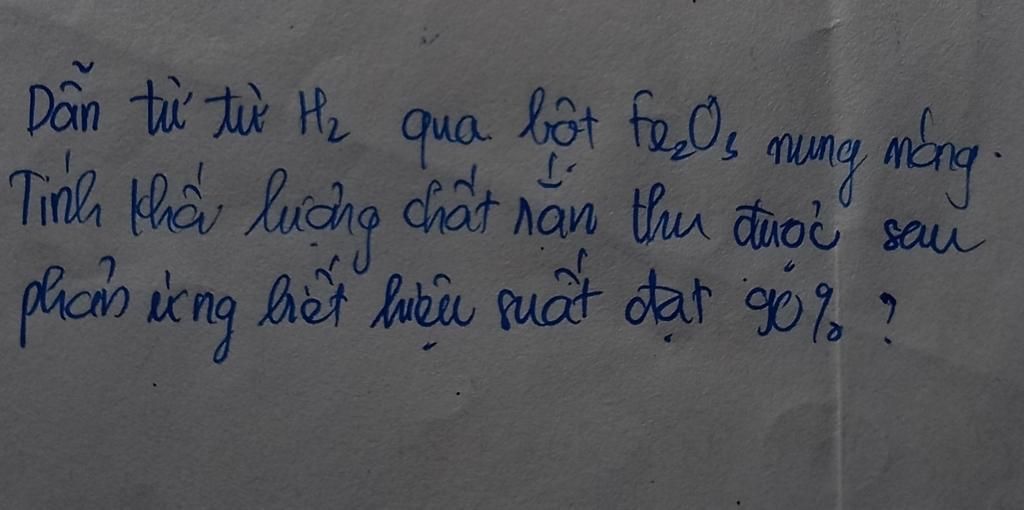 Dẫn từ từ H₂ qua bột Fe₂O₃ nung nóng.
Tính khối lượng chất rắn thu được sau
phản ứng biết hiệu suất đạt 90% ?